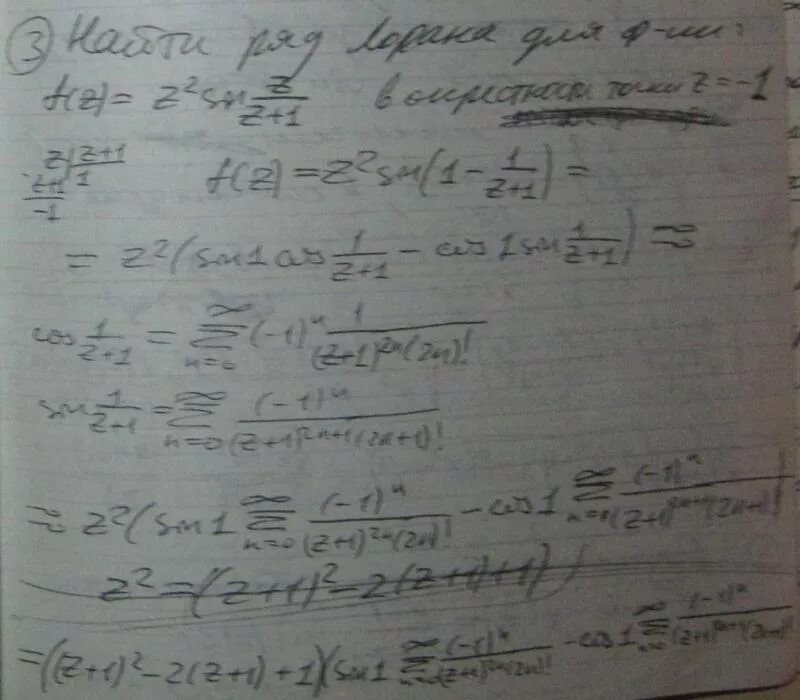 ③ Найти ряд Лорана для ф-ии:
f(z) = z² sin z/(z+1) в окрестности точки z = -1
z | z+1
z+1 | 1
-1
f(z) = z² sin(1 - 1/(z+1)) =
= z² (sin1 cos 1/(z+1) - cos1 sin 1/(z+1)) =
cos 1/(z+1) = ∑_{n=0}^{∞} (-1)ⁿ 1/((z+1)^{2n} (2n)!)
sin 1/(z+1) = ∑_{n=0}^{∞} (-1)ⁿ/((z+1)^{2n+1} (2n+1)!)
= z² (sin1 ∑_{n=0}^{∞} (-1)ⁿ/((z+1)^{2n} (2n)!) - cos1 ∑_{n=0}^{∞} (-1)ⁿ/((z+1)^{2n+1} (2n+1)!)
z² = (z+1)² - 2(z+1)+1)
= ((z+1)² - 2(z+1) + 1)(sin1 ∑_{n=0}^{∞} (-1)ⁿ/((z+1)^{2n} (2n)!) - cos1 ∑_{n=0}^{∞} (-1)ⁿ/((z+1)^{2n+1} (2n+1)!)